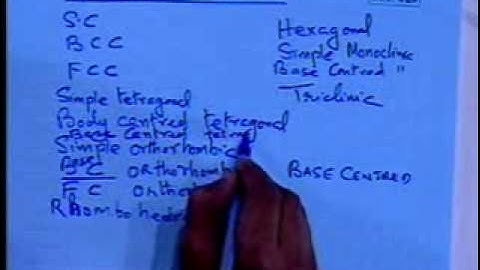 S.C
BCC
FCC
Simple tetragonal
Body centred tetragonal
Base Centred
Simple orthorhombic
Base C
F C
Hexagonal
Simple Monoclinic
Base Centred "
Triclinic
BASE CENTRED